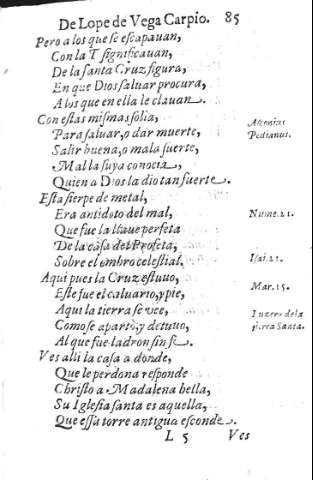 De Lope de Vega Carpio. 85
Pero a los que se escapauan,
Con la T significauan,
De la santa Cruz figura,
En que Dios saluar procura,
A los que en ella le clauan.
Con estas mismas solia,
Para saluar, o dar muerte,
Salir buena, o mala suerte,
Mal la suya conocia,
Quien a Dios la dio tan fuerte.
Esta sierpe de metal,
Era antidoto del mal,
Que fue la llaue perfeta
De la casa del Profeta,
Sobre el ombro celestial,
Aqui pues la Cruz estuuo,
Este fue el caluario, y pie,
Aqui la tierra se vee,
Como se aparto, y detuuo,
Al que fue ladron sin fe.
Ves alli la casa a donde,
Que le perdona responde
Christo a Madalena bella,
Su Iglesia santa es aquella,
Que essa torre antigua esconde.
L 5 Ves
Pedianus.
Nume. 21.
Isai. 21.
Mar. 15.
tierra Santa.